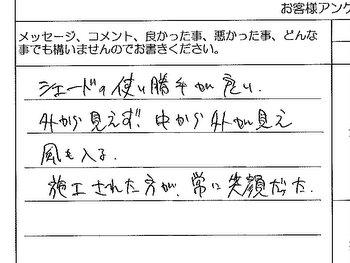 お客様アンケ
メッセージ、コメント、良かった事、悪かった事、どんな
事でも構いませんのでお書きください。
シェードの使い勝手が良い.
外から見えず、中から外が見え
風も入る.
施工された方が、常に笑顔だった.